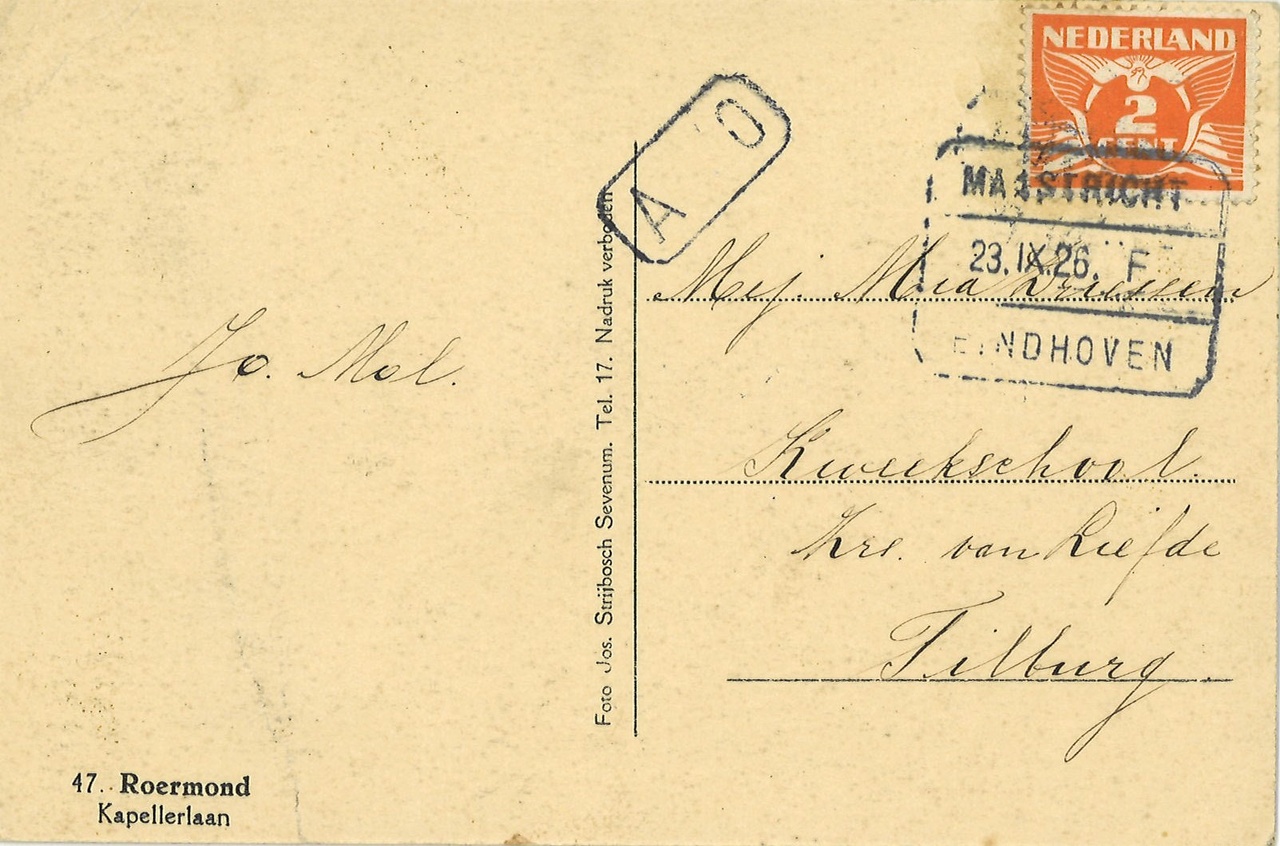 NEDERLAND
2
CENT
A O
MAASTRICHT
23.IX.26. F
EINDHOVEN
Mej. Mia Driessen
Kweekschool
Zrs. van Liefde
Tilburg.
Jo. Mol.
Foto Jos. Strijbosch Sevenum. Tel. 17. Nadruk verboden
47. Roermond
Kapellerlaan